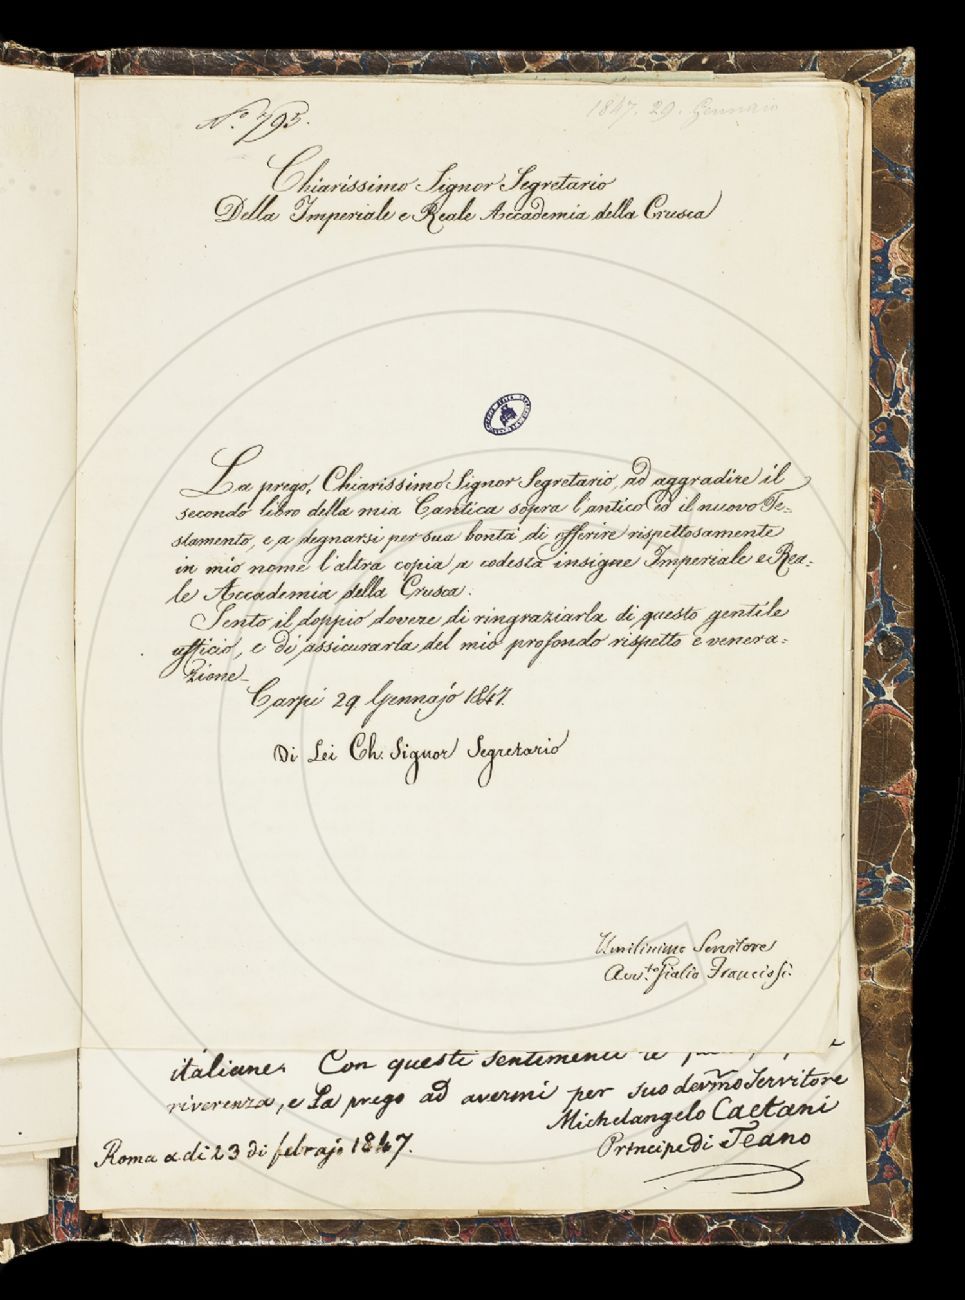 N.° 793.
1847. 29. Gennaio
Chiarissimo Signor Segretario
Della Imperiale e Reale Accademia della Crusca
La prego, Chiarissimo Signor Segretario, ad aggradire il
secondo libro della mia Cantica sopra l'antico ed il nuovo Te=
stamento, e a degnarsi per sua bontà di offerire rispettosamente
in mio nome l'altra copia a codesta insigne Imperiale e Rea=
le Accademia della Crusca.
Sento il doppio dovere di ringraziarla di questo gentile
ufficio, e di assicurarla del mio profondo rispetto e venera=
zione.
Carpi 29 Gennajo 1847.
Di Lei Ch. Signor Segretario
Umilissimo Servitore
Avv.to Giulio Franciosi
italiane. Con questi sentimenti
riverenza, e La prego ad avermi per suo devmo Servitore
Michelangelo Caetani
Principe di Teano
Roma a di 23 di febrajo 1847.